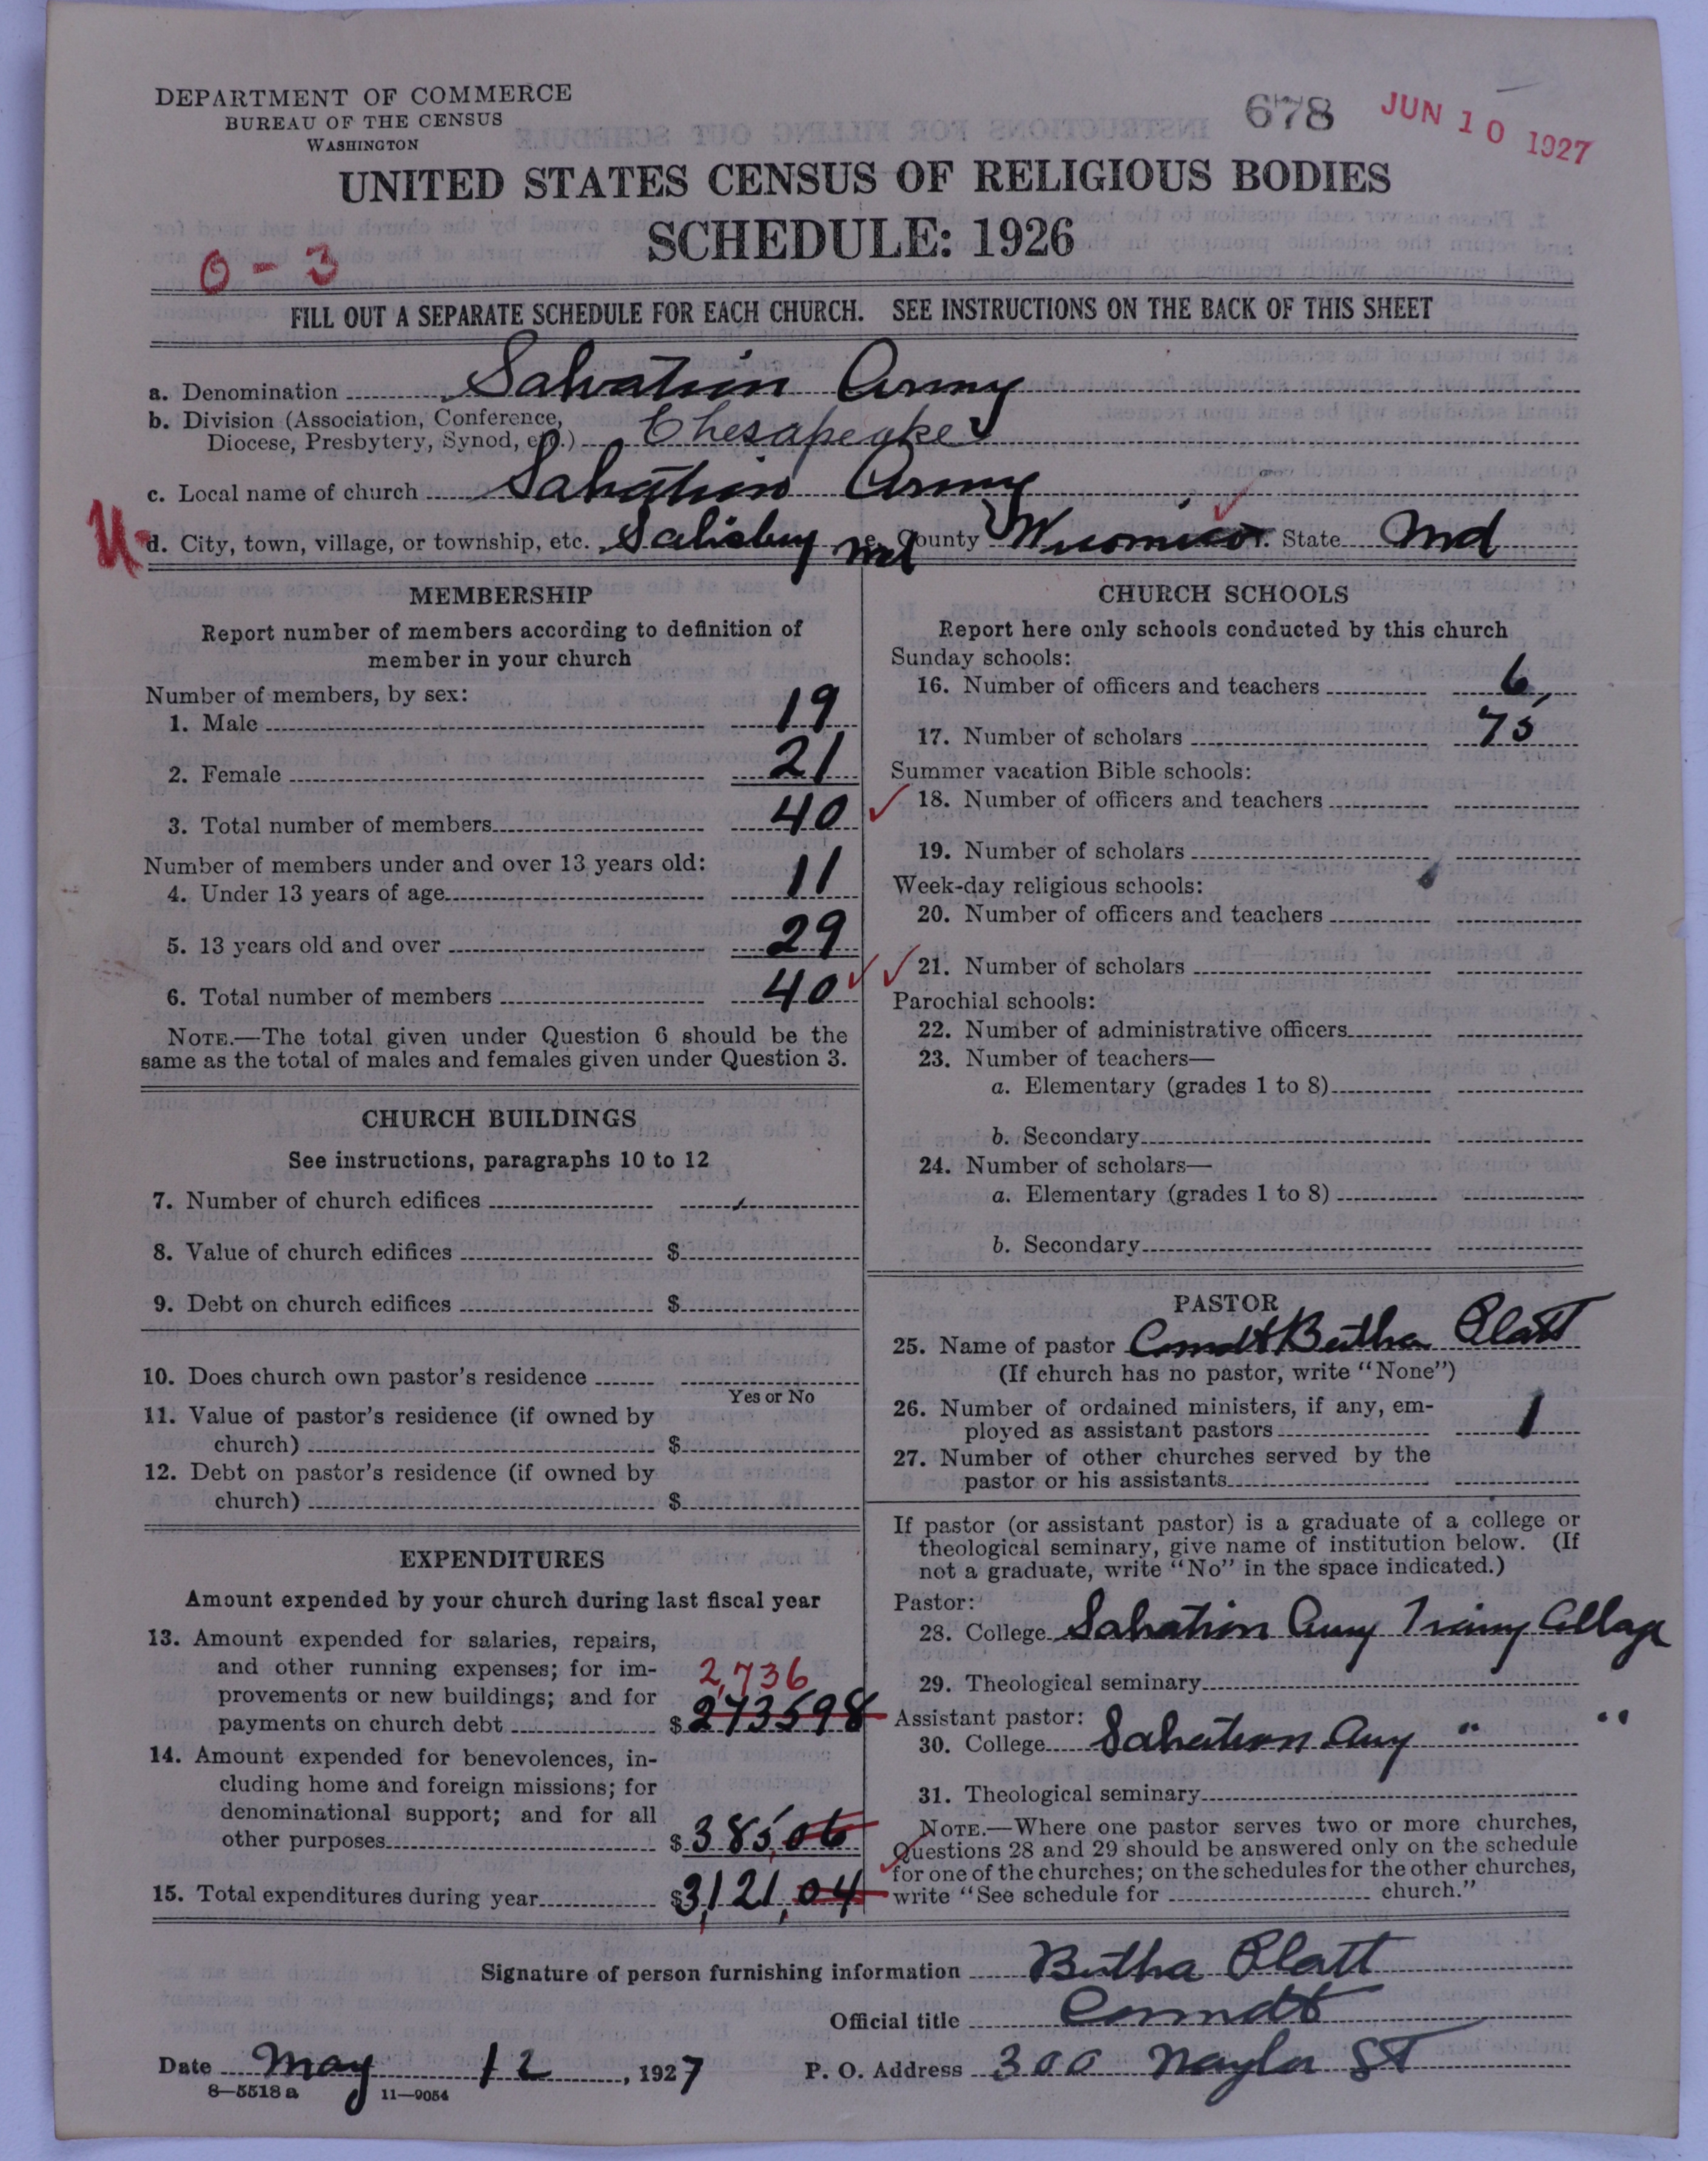 DEPARTMENT OF COMMERCE
BUREAU OF THE CENSUS
WASHINGTON
678 JUN 10 1927
UNITED STATES CENSUS OF RELIGIOUS BODIES
SCHEDULE: 1926
0-3
FILL OUT A SEPARATE SCHEDULE FOR EACH CHURCH. SEE INSTRUCTIONS ON THE BACK OF THIS SHEET
a. Denomination Salvation Army
b. Division (Association, Conference,
Diocese, Presbytery, Synod, etc.) Chesapeake
c. Local name of church Salvation Army
d. City, town, village, or township, etc. Salisbuy Md e. County Wicomico f. State Md
MEMBERSHIP
Report number of members according to definition of
member in your church
Number of members, by sex:
1. Male 19
2. Female 21
3. Total number of members 40
Number of members under and over 13 years old:
4. Under 13 years of age 11
5. 13 years old and over 29
6. Total number of members 40
NOTE.—The total given under Question 6 should be the
same as the total of males and females given under Question 3.
CHURCH BUILDINGS
See instructions, paragraphs 10 to 12
7. Number of church edifices
8. Value of church edifices $
9. Debt on church edifices $
10. Does church own pastor's residence
Yes or No
11. Value of pastor's residence (if owned by
church) $
12. Debt on pastor's residence (if owned by
church) $
EXPENDITURES
Amount expended by your church during last fiscal year
13. Amount expended for salaries, repairs,
and other running expenses; for im-
provements or new buildings; and for 2,736
payments on church debt $ 273598
14. Amount expended for benevolences, in-
cluding home and foreign missions; for
denominational support; and for all
other purposes $ 385,06
15. Total expenditures during year $ 3,121,04
CHURCH SCHOOLS
Report here only schools conducted by this church
Sunday schools:
16. Number of officers and teachers 6
17. Number of scholars 75
Summer vacation Bible schools:
18. Number of officers and teachers
19. Number of scholars
Week-day religious schools:
20. Number of officers and teachers
21. Number of scholars
Parochial schools:
22. Number of administrative officers
23. Number of teachers—
a. Elementary (grades 1 to 8)
b. Secondary
24. Number of scholars—
a. Elementary (grades 1 to 8)
b. Secondary
PASTOR
25. Name of pastor Comdt Bertha Platt
(If church has no pastor, write "None")
26. Number of ordained ministers, if any, em-
ployed as assistant pastors 1
27. Number of other churches served by the
pastor or his assistants
If pastor (or assistant pastor) is a graduate of a college or
theological seminary, give name of institution below. (If
not a graduate, write "No" in the space indicated.)
Pastor:
28. College Salvation Army Traing Collage
29. Theological seminary
Assistant pastor:
30. College Salvation Army " "
31. Theological seminary
NOTE.—Where one pastor serves two or more churches,
Questions 28 and 29 should be answered only on the schedule
for one of the churches; on the schedules for the other churches,
write "See schedule for church."
Signature of person furnishing information Bertha Platt
Official title Comdt
Date May 12, 1927 P. O. Address 300 Naylor St
8-5518 a 11-9054